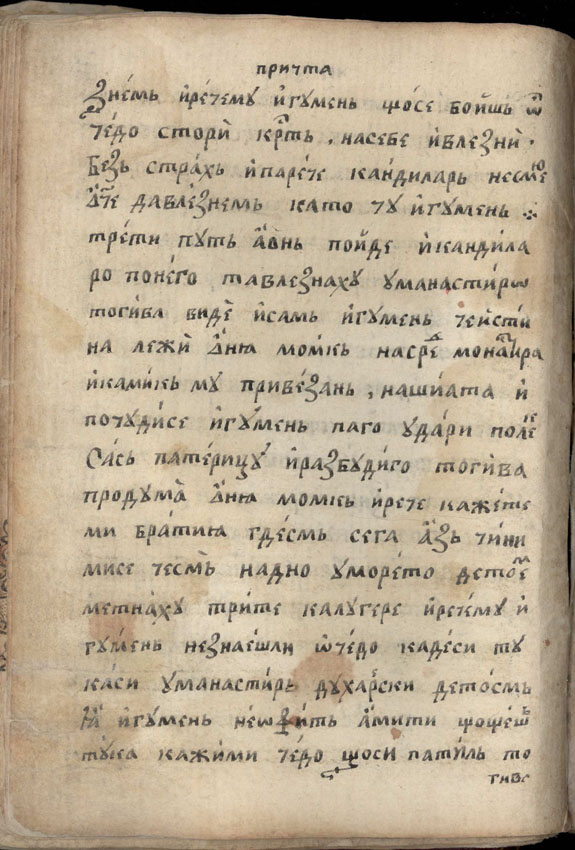 причта
ꙁнемь и҆ре́чемꙋ и҆гꙋмень що́се бои́шь ѿ
че́до стори̑ крⷭ҇ть , насебе и҆влеꙁни ·
беꙁь страⷯь и҆паре́че кандиларь несмⷨе́ю
ѻ҆́тⷱ҇е давле́ꙁнемь като тꙋ и҆гꙋмень ⁘
тре́ти пꙋть а҆́внь пои́де и҆кандила
ро поне́го тавлеꙁнахꙋ ꙋманасти́рѡ
тоги́ва виде̑ и҆самь и҆гꙋмень чеи҆сти
на лежи̑ ѻ҆́ню момкь насреⷣ монаⷭ҇тира
и҆ками́кь мꙋ приве́ꙁань , наши́ата и҆
почꙋди́се и҆гꙋ́мень паго ꙋда́ри полеⷦ҇
сась пате́рицꙋ и҆раꙁбꙋди́го тоги́ва
продꙋма̀ ѻ҆́ню момкь и҆рече каже́те
ми бра́тию где́смь сега а҆́ꙁь чи́ни
мисе чесмъ̀ надно ꙋмо́рето детоⷨе
метна́хꙋ три́те калꙋгере и҆ре́чемꙋ и҆
гꙋме́нь неꙁнае́шли ѽче́до каде́си тꙋ
ка́си ꙋманасти́рь дꙋха́рски дето́смь
ꙗ҆̀ и҆гꙋмень а҆́мити щоще́шь
тꙋ́ка кажи́ми че́до що́си пати́ль то
гива